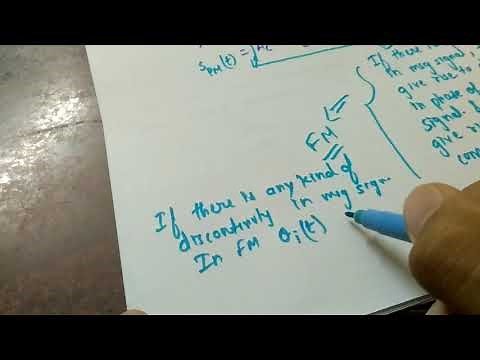 S_PM(t) = Ac
If there
in msg signal,
give rise to
in phase of
signal.
give
FM
If there is any kind of
discontinuity in msg sign.
In FM θi(t)